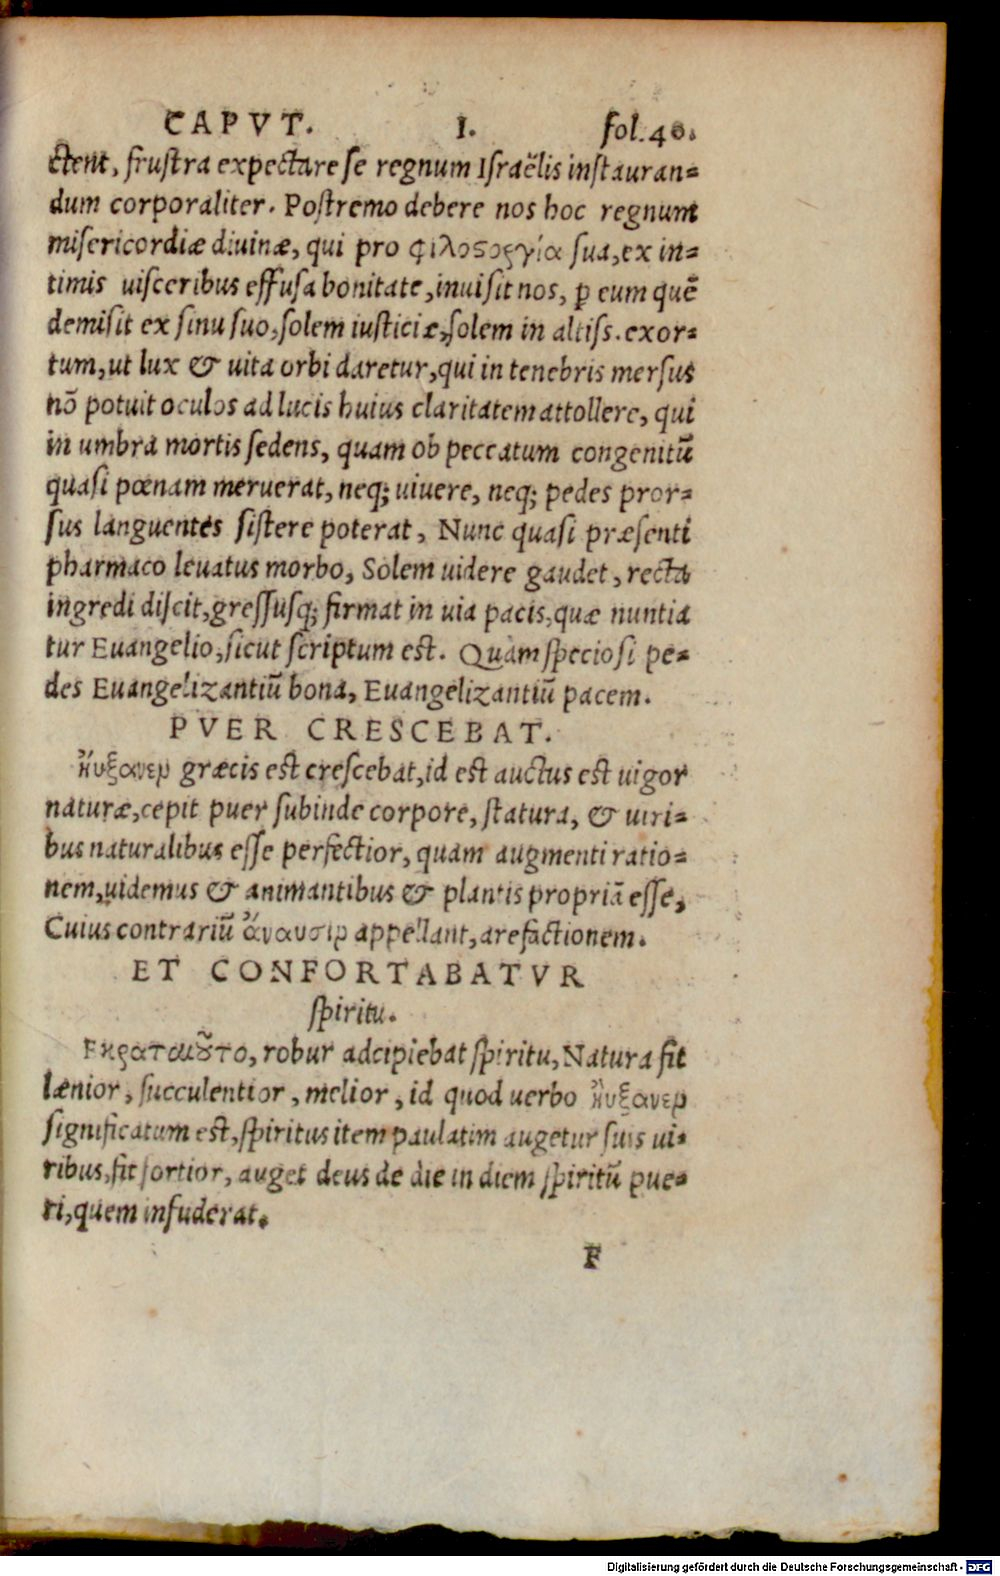 CAPVT. I. fol. 40.
ctent, frustra expectare se regnum Israëlis instauran-
dum corporaliter. Postremo debere nos hoc regnum
misericordiæ diuinæ, qui pro φιλοσοργία sua, ex in-
timis uisceribus effusa bonitate, inuisit nos, ꝑ eum quē
demisit ex sinu suo, solem iusticiæ, solem in altiss. exor-
tum, ut lux & uita orbi daretur, qui in tenebris mersus
nō potuit oculos ad lucis huius claritatem attollere, qui
in umbra mortis sedens, quam ob peccatum congenitū
quasi pœnam meruerat, neq; uiuere, neq; pedes pror-
sus languentes sistere poterat, Nunc quasi præsenti
pharmaco leuatus morbo, Solem uidere gaudet, recta
ingredi discit, gressusq; firmat in uia pacis, quæ nuntia
tur Euangelio, sicut scriptum est. Quàm speciosi pe-
des Euangelizantiū bona, Euangelizantiū pacem.
PVER CRESCEBAT.
ἤυξανεν græcis est crescebat, id est auctus est uigor
naturæ, cepit puer subinde corpore, statura, & uiri-
bus naturalibus esse perfectior, quam augmenti ratio-
nem, uidemus & animantibus & plantis propriā esse,
Cuius contrariū ἄναυσιν appellant, arefactionem.
ET CONFORTABATVR
spiritu.
Εκραταιοῦτο, robur adcipiebat spiritu, Natura fit
lænior, succulentior, melior, id quod uerbo ἤυξανεν
significatum est, spiritus item paulatim augetur suis ui-
ribus, fit fortior, auget deus de die in diem spiritū pue-
ri, quem infuderat.
F
Digitalisierung gefördert durch die Deutsche Forschungsgemeinschaft - DFG